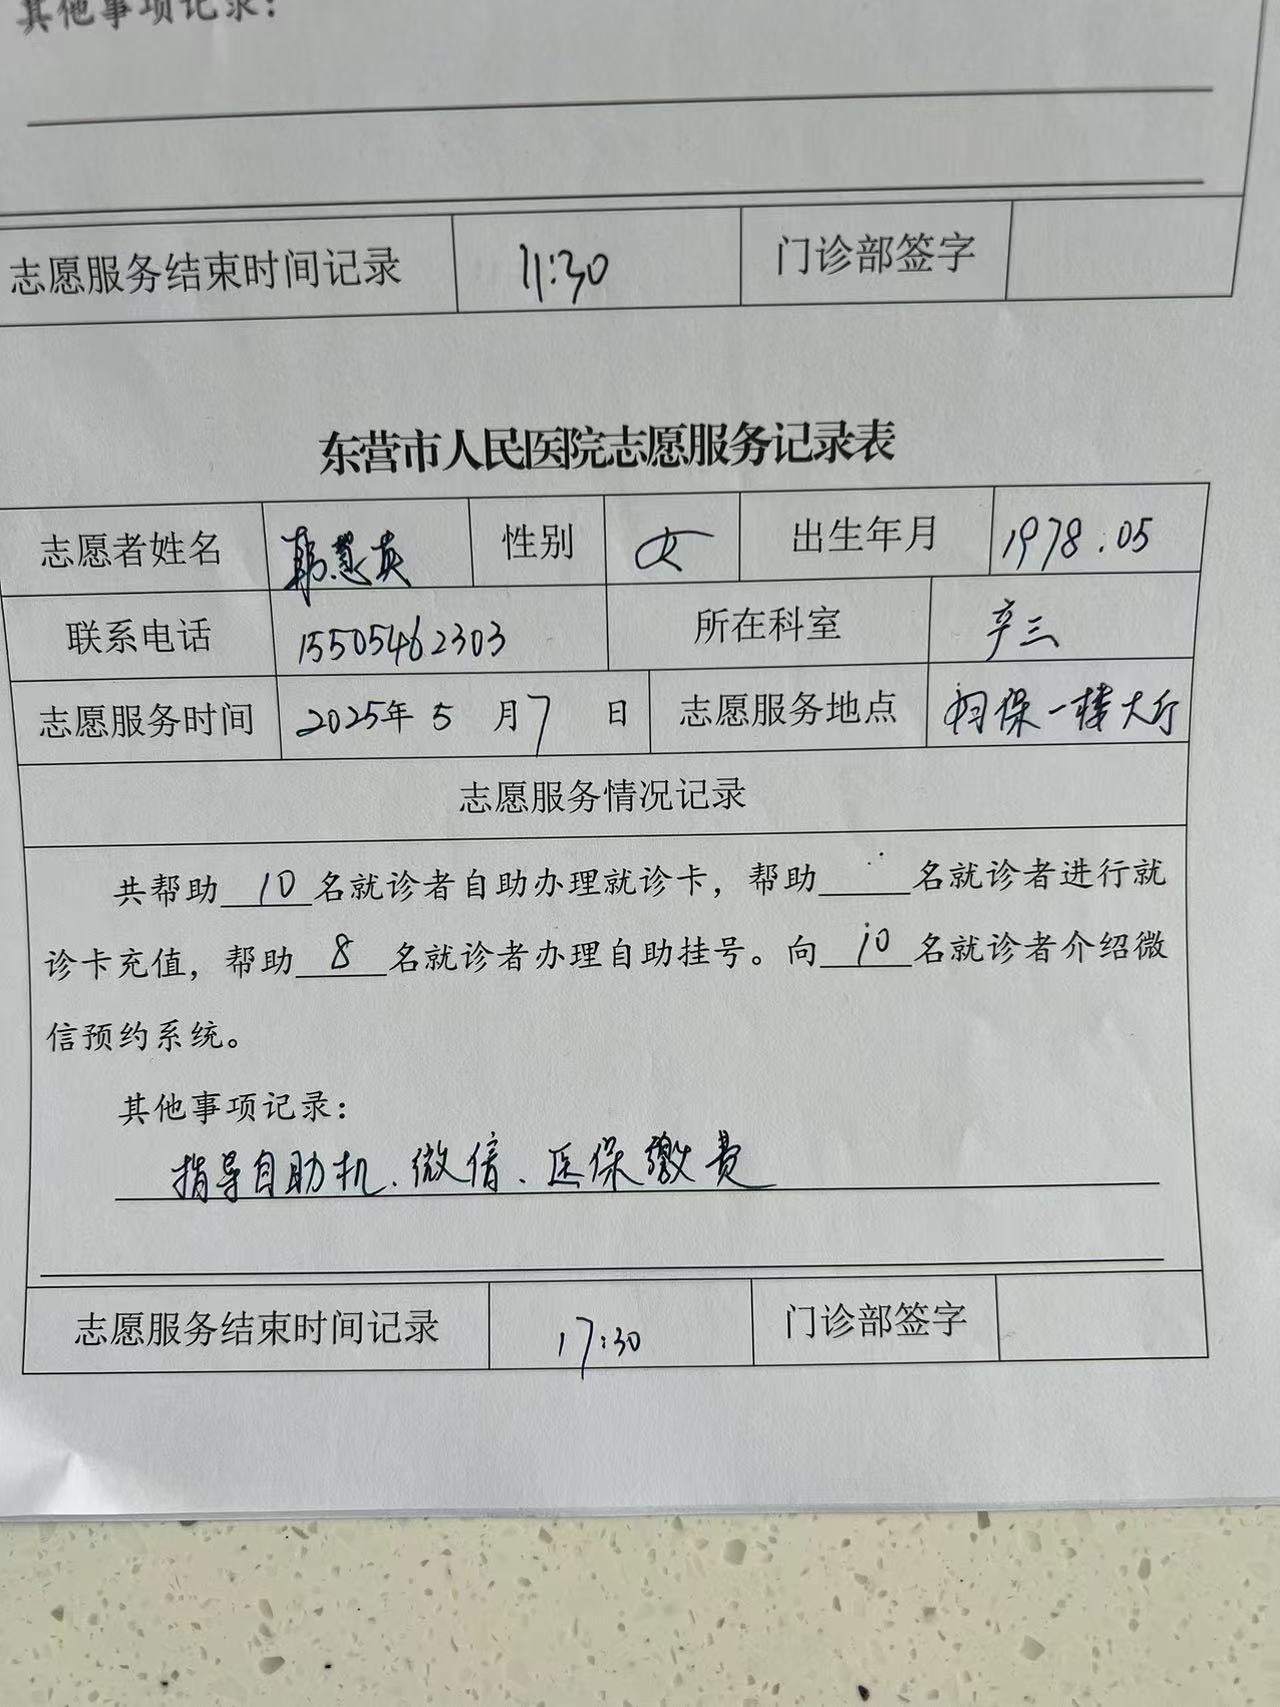 其他事项记录：
志愿服务结束时间记录 11:30 门诊部签字
东营市人民医院志愿服务记录表
志愿者姓名 韩慧英 性别 女 出生年月 1978.05
联系电话 15505462303 所在科室 辛三
志愿服务时间 2025年 5 月 7 日 志愿服务地点 妇保一楼大厅
志愿服务情况记录
共帮助 10 名就诊者自助办理就诊卡，帮助 名就诊者进行就
诊卡充值，帮助 8 名就诊者办理自助挂号。向 10 名就诊者介绍微
信预约系统。
其他事项记录：
指导自助机、微信、医保缴费
志愿服务结束时间记录 17:30 门诊部签字